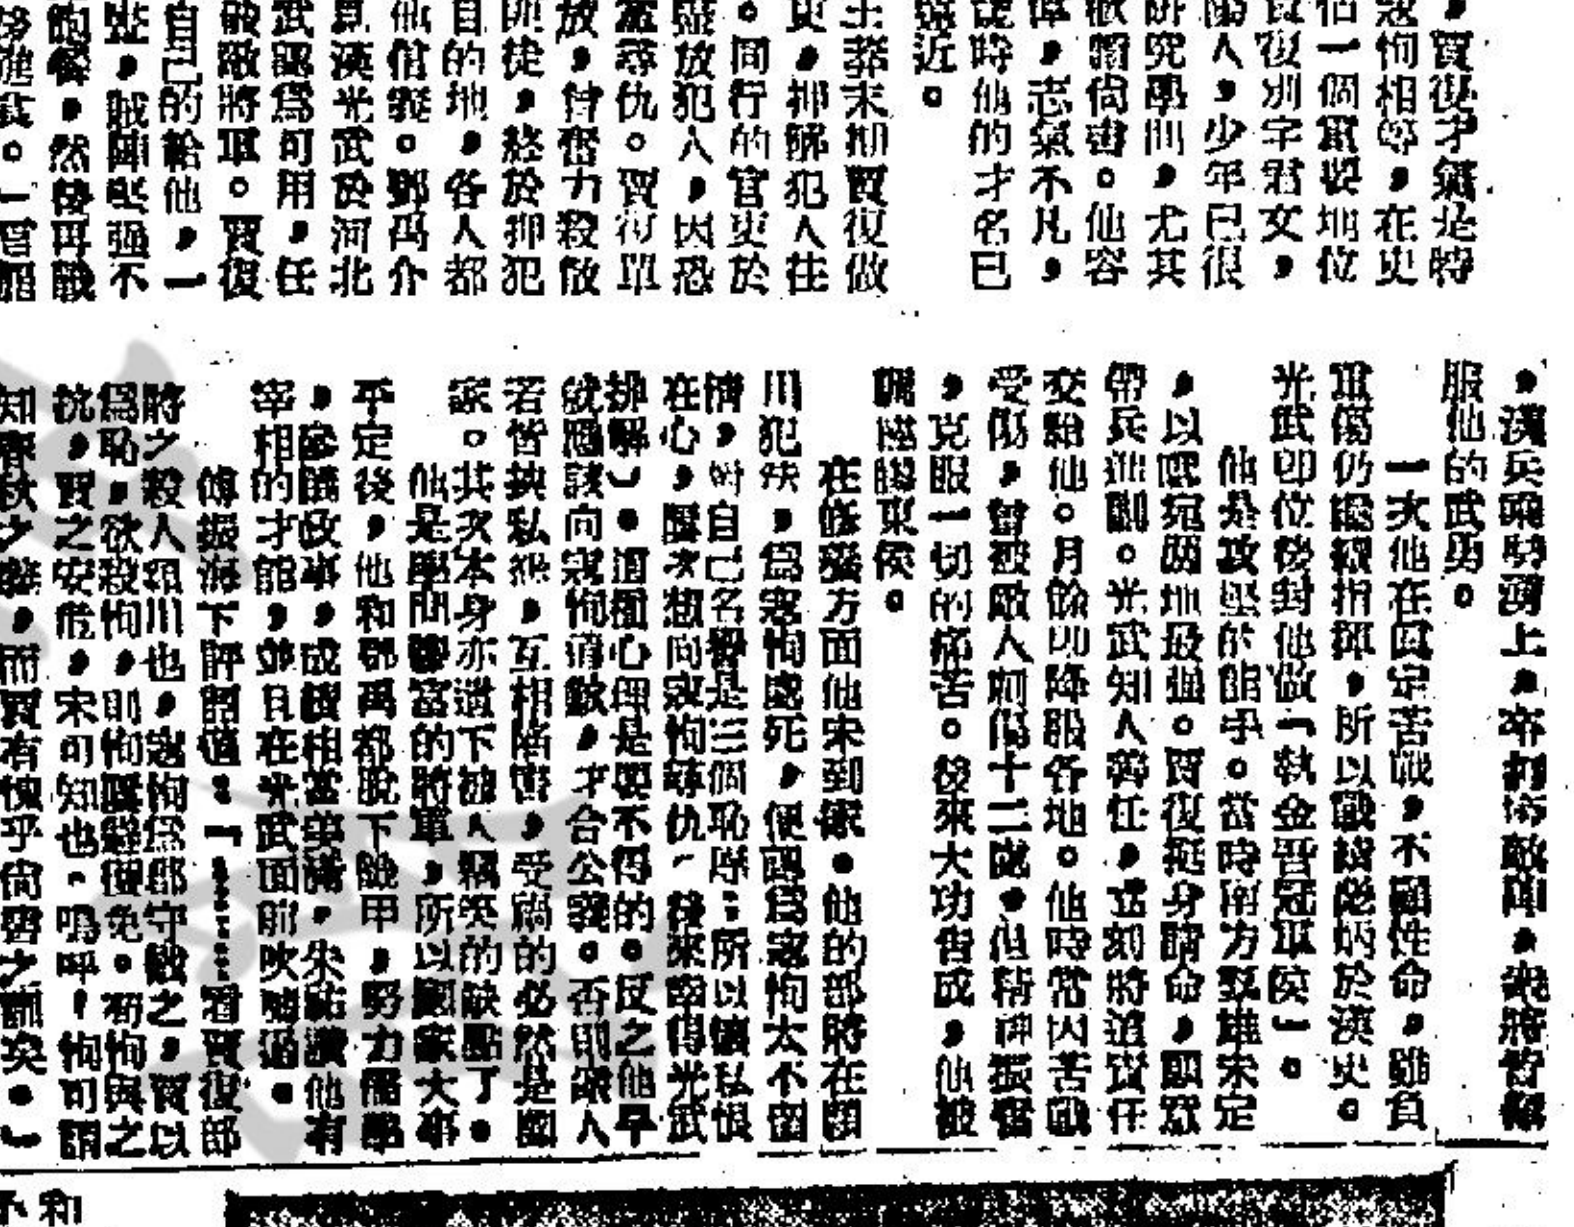 ，賈復才氣是特
寇恂相等，在史
佔一個重要地位
賈復別字君文，
陽人，少年已很
研究學問，尤其
歡讀尚書。他容
偉，志氣不凡，
從時他的才名已
遠近。
王莽末期賈復做
吏，押解犯人往
。同行的官吏於
盡放犯人，因恐
黨尋仇。賈復單
放，曾奮力殺散
匪徒，終於押犯
目的地，各人都
他信義。鄧禹介
見漢光武於河北
武認爲可用，任
破敵將軍。賈復
自己的給他，一
堅，賊陣堅强不
飽餐，然後再戰
，漢兵乘勢湧上，卒打垮敵陣，衆將皆
服他的武勇。
一次他在真定苦戰，不顧性命，雖負
重傷仍能親指揮，所以戰績彪炳於漢史。
光武卽位後封他做「執金吾冠軍侯」。
他是攻堅的能手。當時南方羣雄未定
，以郾宛兩地最强。賈復挺身請命，願意
帶兵進剿。光武知人善任，立刻將這責任
交給他。月餘卽降服各地。他時常因苦戰
受傷，曾被敵人刺傷十二處，但精神振奮
，克服一切的痛苦。後來大功告成，他被
調遷膠東侯。
在修養方面他未到家。他的部將在潁
川犯法，爲寇恂處死，便認爲寇恂太不留
情，對自己名譽是三個恥辱；所以懷私恨
在心，屢次想向寇恂尋仇（後來幸得光武
排解）。這種心理是要不得的。反之他早
就應該向寇恂道歉，才合公義。否則歐人
若皆挾私怨，互相陷害，受禍的必然是國
家。其次本身亦遺下被人竊笑的缺點了。
他是學問豐富的將軍，所以國家大事
平定後，他和鄧禹都脫下鎧甲，努力儒學
，參議政事，成績相當美滿，朱祐讚他有
宰相的才能，並且在光武面前吹噓過。
傅振海下評語道：「……看賈復部
將之殺人潁川也，寇恂爲郡守戮之，賈以
爲恥，欲殺恂，則恂屢避僅免。藉恂與之
抗，賈之安危，未可知也。嗚呼！恂可謂
知春秋之義，而賈有愧乎尙書之訓矣。」
和